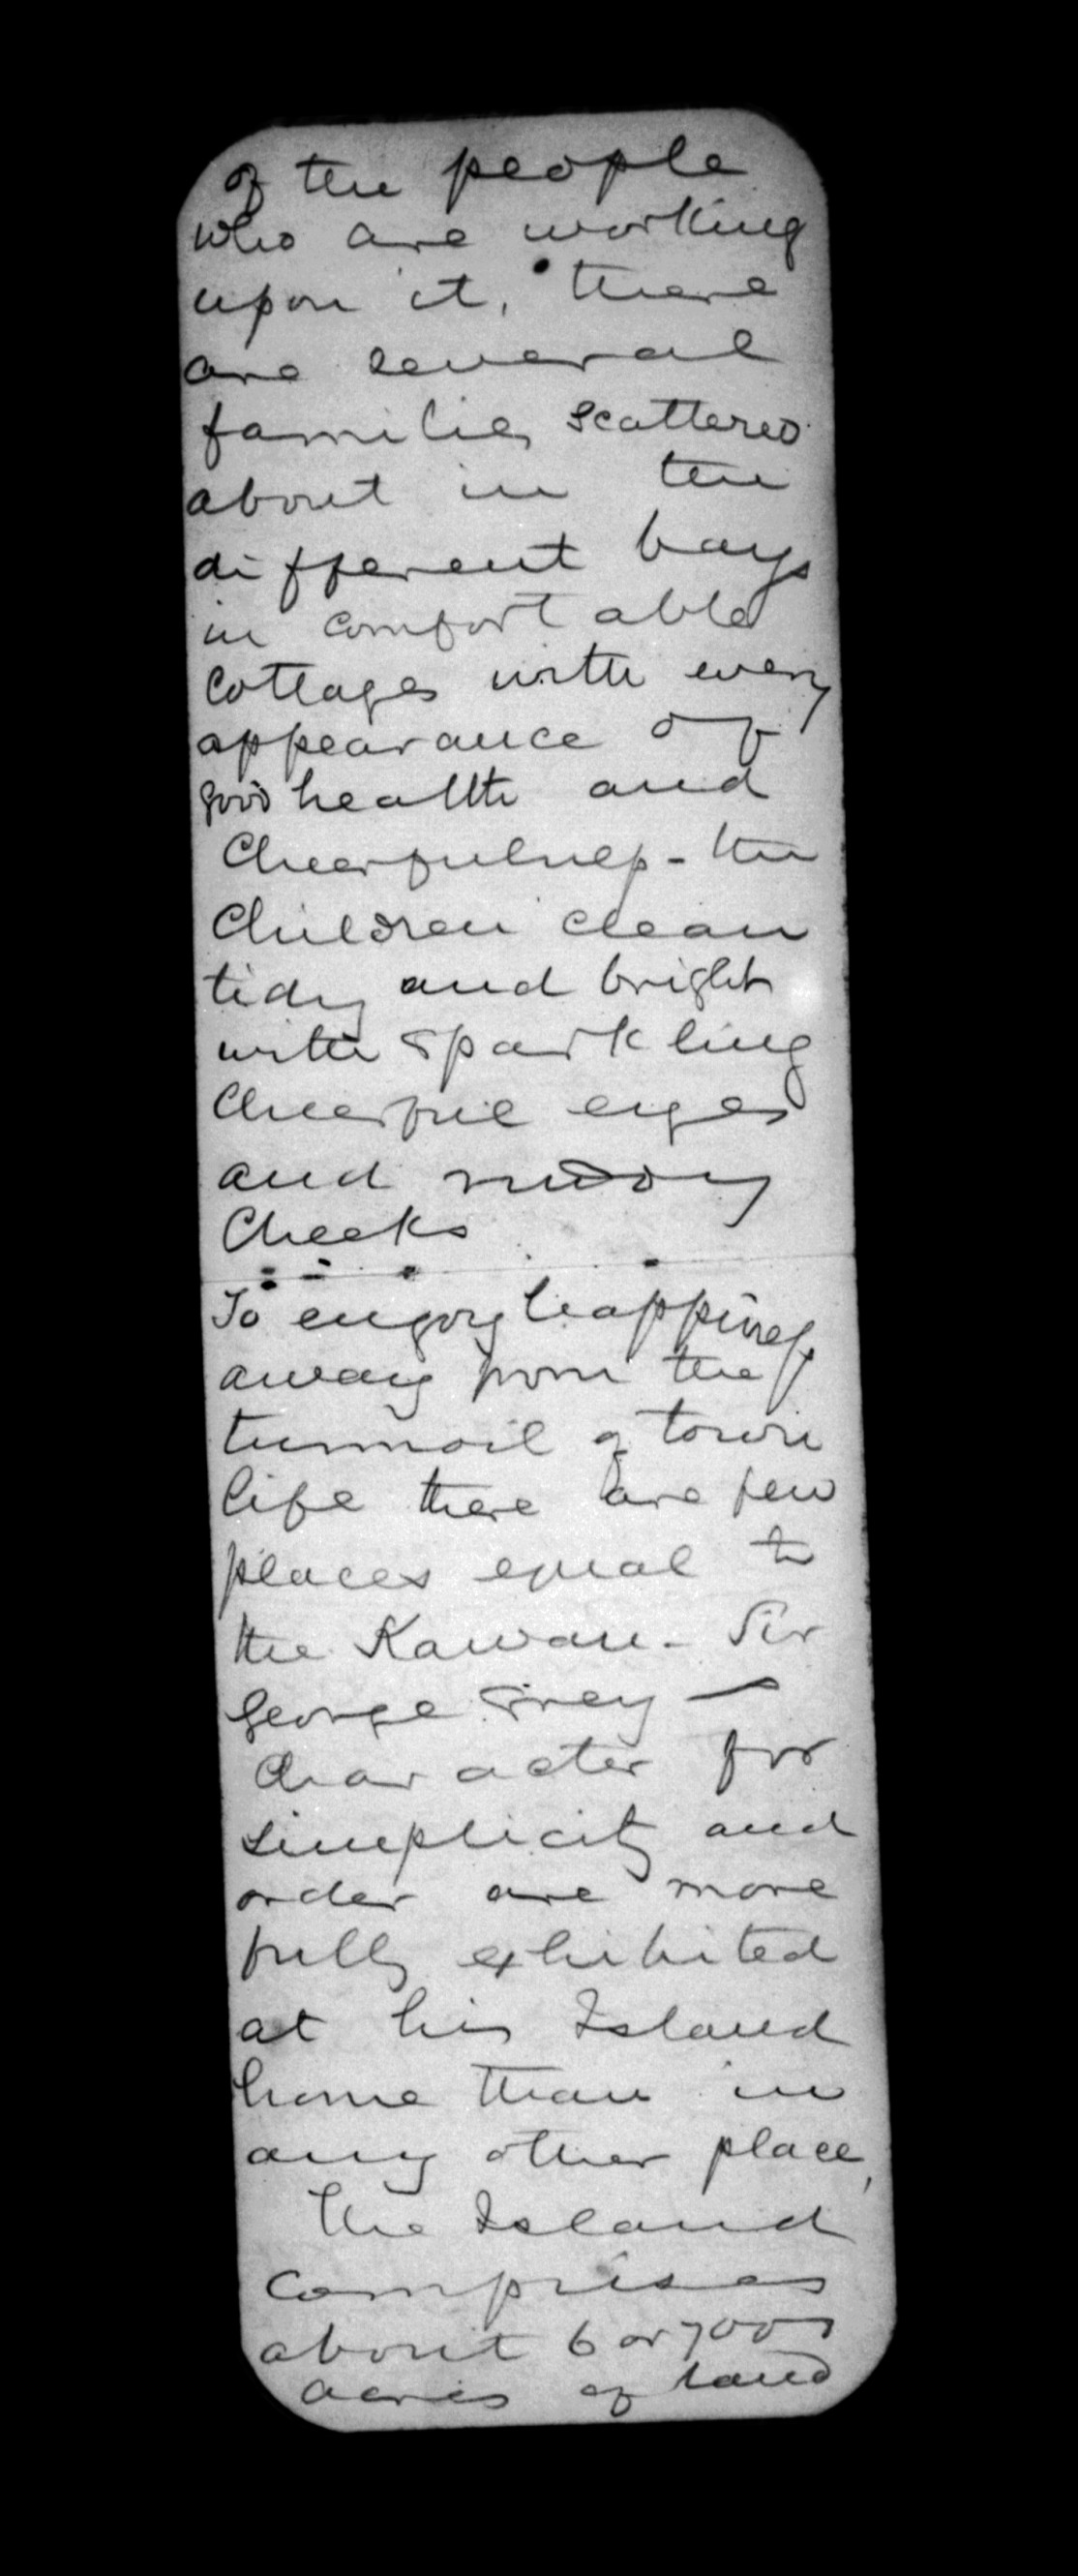 of the people
who are working
upon it, there
are several
families scattered
about in the
different bays
in comfortable
Cottages with every
appearance of
good health and
Cheerfulness - the
Children clean
tidy and bright
with sparkling
Cheerful eyes
and ruddy
Cheeks
To enjoy happiness
away from the
turmoil of town
life there are few
places equal to
the Kawau - Sir
George Grey
Character for
simplicity and
order are more
fully exhibited
at his Island
home than in
any other place,
The Island
Comprises
about 6 or 7000
acres of land